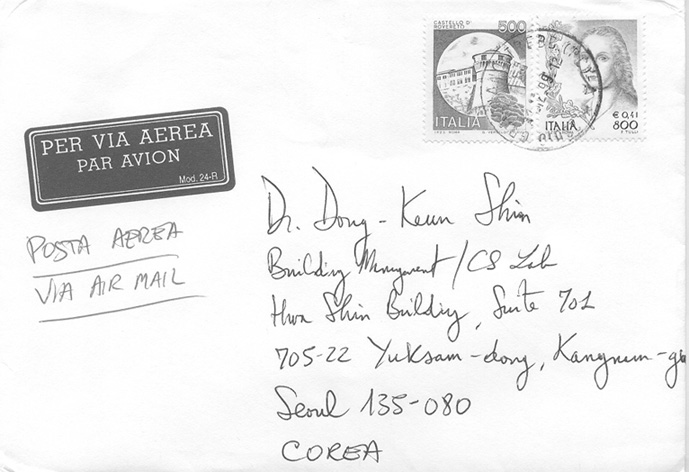 CASTELLO DI
ROVERETO
500
ITALIA
ITALIA
€ 0,41
800
PER VIA AEREA
PAR AVION
Mod. 24-R
POSTA AEREA
VIA AIR MAIL
Dr. Dong-Keun Shin
Building Management / CS Lab
Hwa Shin Building, Suite 701
705-22 Yuksam-dong, Kangnum-gu
Seoul 135-080
COREA